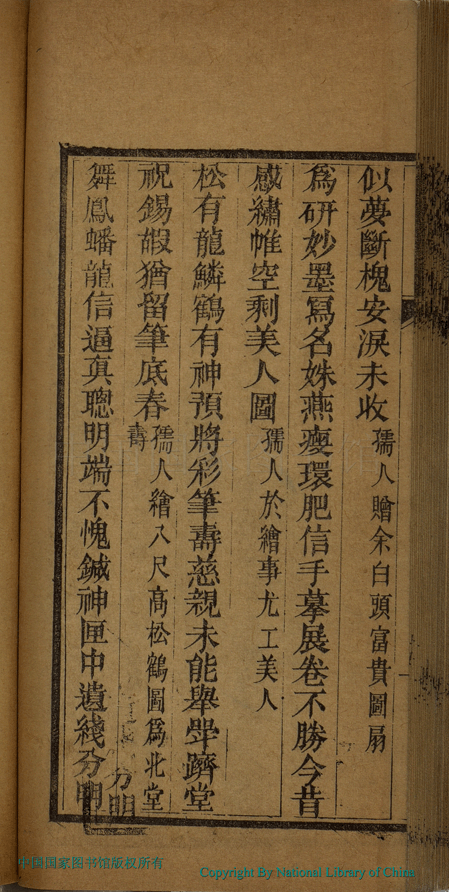 似夢斷槐安淚未收孺人贈余白頭富貴圖扇
爲研妙墨寫名姝燕瘦環肥信手摹展卷不勝今昔
感繡帷空剩美人圖孺人於繪事尤工美人
松有龍鱗鶴有神預將彩筆壽慈親未能舉斝躋堂
祝錫嘏猶留筆底春孺人繪八尺高松鶴圖爲北堂
壽
舞鳳蟠龍信逼眞聰明端不愧鍼神匣中遺綫分明
分明
中国国家图书馆版权所有
Copyright By National Library of China